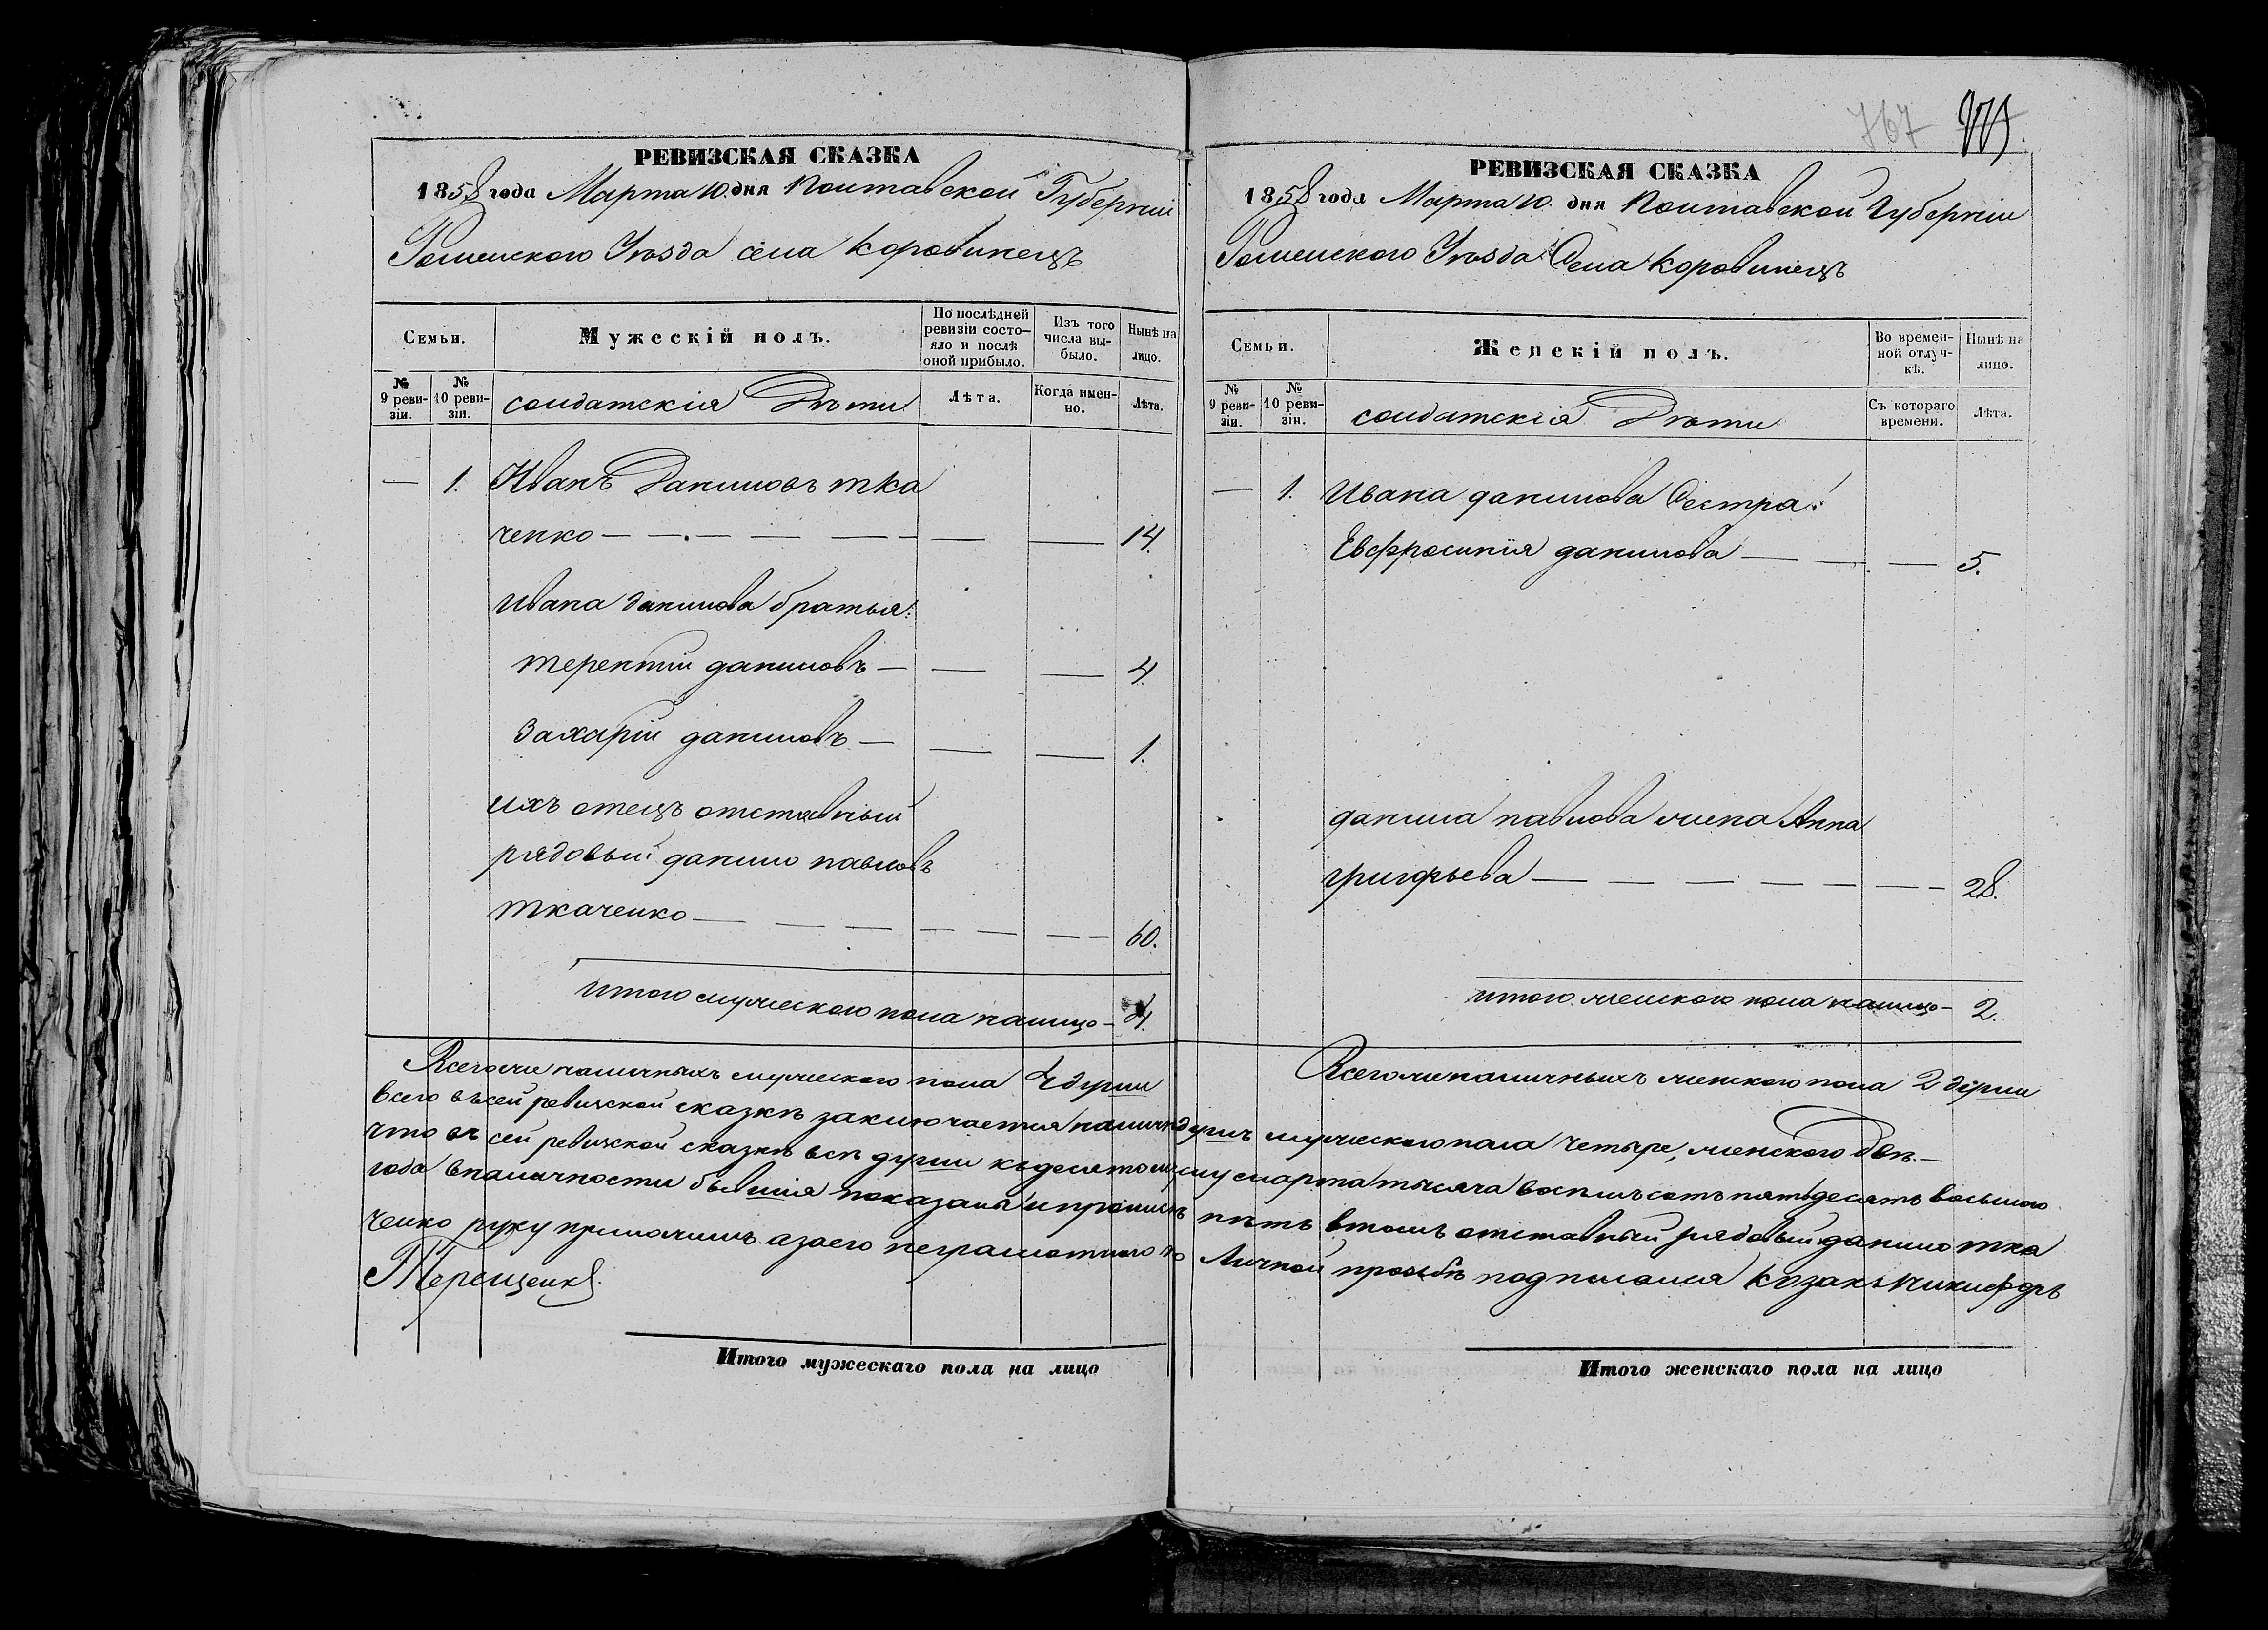 767
РЕВИЗСКАЯ СКАЗКА
1858 года Марта 10. дня Полтавской Губерніи
Роменского Уѣзда села Коровинецъ
Семьи.
Мужескій полъ.
По послѣдней ревизіи состояло и послѣ оной прибыло.
Изъ того числа выбыло.
Нынѣ на лицо.
№ 9 ревизіи.
№ 10 ревизіи.
солдатскія Дѣти
Лѣта.
Когда именно.
Лѣта.
— 1. Иванъ Даниловъ тка
ченко — — — — — — — 14.
Ивана данилова братья:
терентій даниловъ — — — 4.
Захарій даниловъ — — — 1.
ихъ отецъ отставный
рядовый данило павловъ
ткаченко — — — — — — 60.
итого мужеского пола налицо — 4.
Всего же наличныхъ мужеского пола 4 души
РЕВИЗСКАЯ СКАЗКА
1858 года Марта 10. дня Полтавской Губерніи
Роменского Уѣзда Села Коровинецъ
Семьи.
Женскій полъ.
Во временной отлучкѣ.
Нынѣ на лицо.
№ 9 ревизіи.
№ 10 ревизіи.
солдатскія Дѣти
Съ котораго времени.
Лѣта.
— 1. Ивана данилова Сестра:
Евфросинія данилова — — — 5.
данила павлова жена Анна
григорьева — — — — — — — 28.
итого женского пола налицо — 2.
Всего же наличныхъ женского пола 2 души
всего въ сей ревизской сказкѣ заключается наличн душъ мужеского пола четыре, женского двѣ. —
что въ сей ревизской сказкѣ всѣ души къ десятому марта тысяча восемь сотъ пятьдесятъ восьмого
года вналичности бывшія показаны и прописныхъ нѣтъ втомъ отставный рядовый данило тка
ченко руку приложилъ азаего неграмотного по Личной прозьбѣ подписался козакъ никифоръ
Терещенко.
Итого мужескаго пола на лицо
Итого женскаго пола на лицо